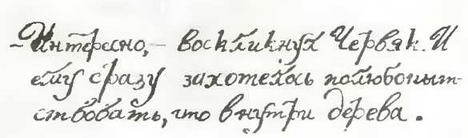 – Интересно, – воскликнул Червяк. И
ему сразу захотелось полюбопыт-
ствовать, что внутри дерева.